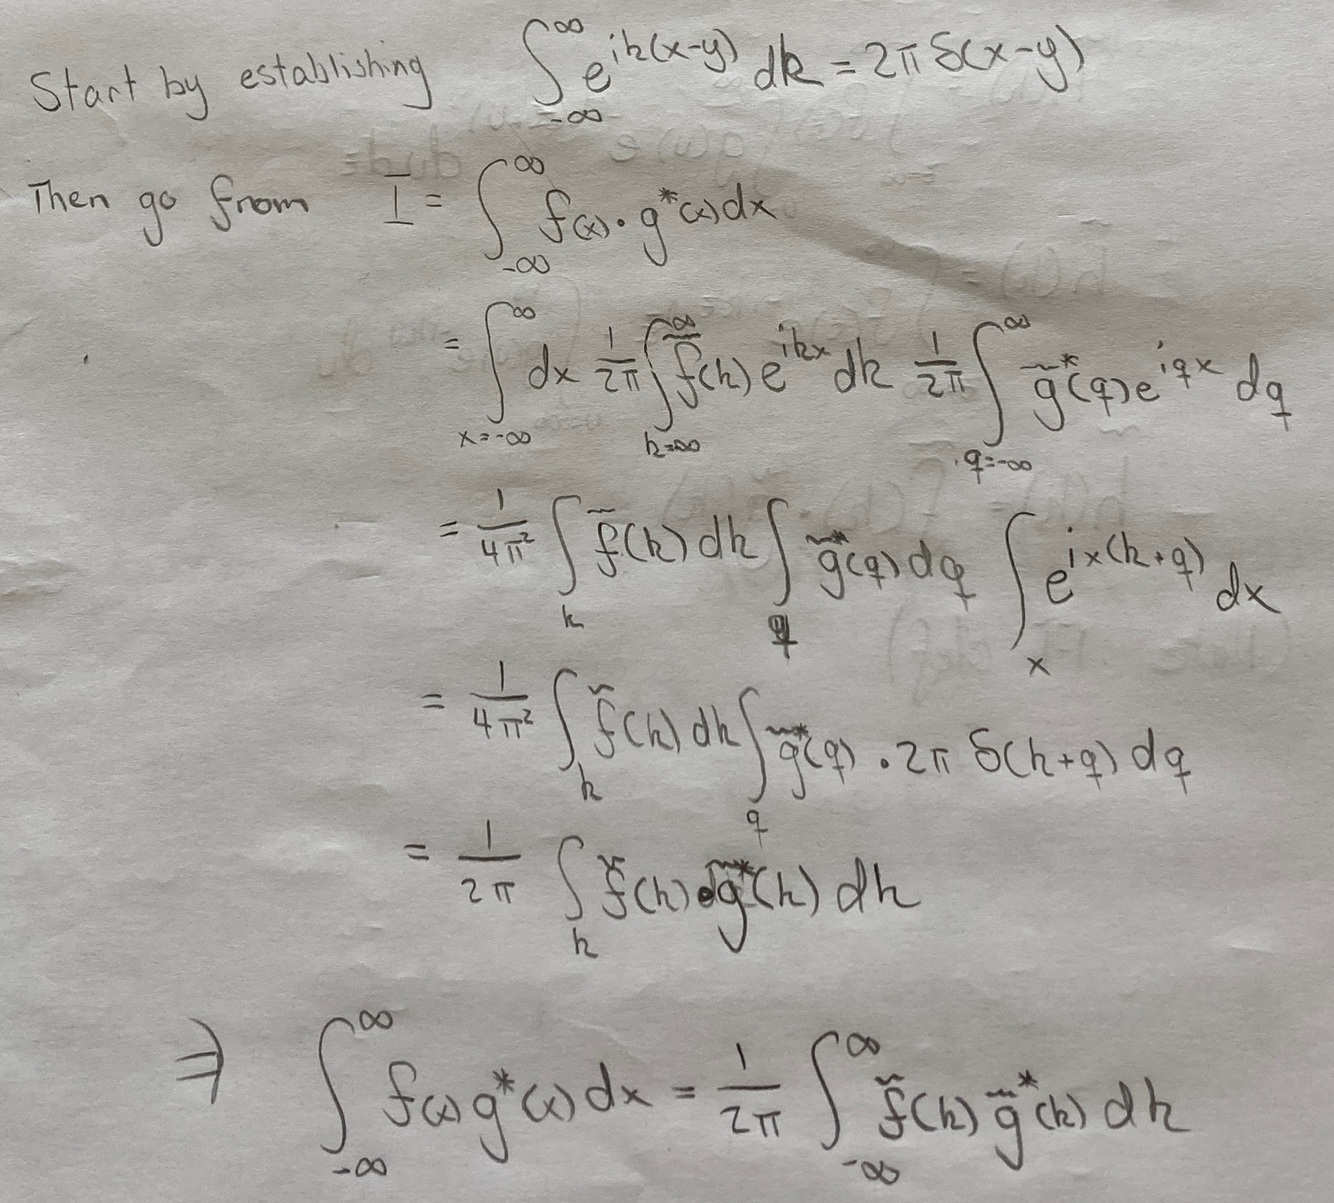 Start by establishing ∫_{-∞}^{∞} e^{ik(x-y)} dk = 2π δ(x-y)
Then go from I = ∫_{-∞}^{∞} f(x) · g*(x) dx
= ∫_{x=-∞}^{∞} dx 1/2π ∫_{k=∞}^{∞} f̃(k) e^{ikx} dk 1/2π ∫_{q=-∞}^{∞} g̃*(q) e^{iqx} dq
= 1/4π² ∫_k f̃(k) dk ∫_q g̃*(q) dq ∫_x e^{ix(k+q)} dx
= 1/4π² ∫_k f̃(k) dk ∫_q g̃*(q) · 2π δ(k+q) dq
= 1/2π ∫_k f̃(k) g̃*(k) dk
⇒ ∫_{-∞}^{∞} f(x) g*(x) dx = 1/2π ∫_{-∞}^{∞} f̃(k) g̃*(k) dk